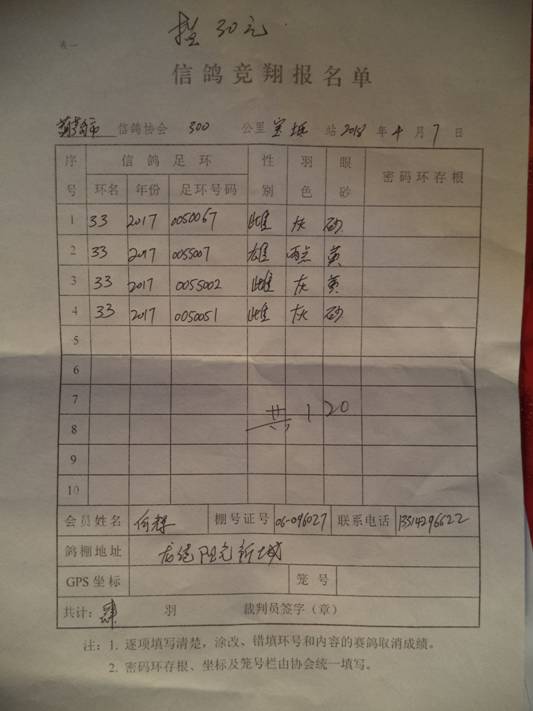 30元
表一
信鸽竞翔报名单
葫芦岛市 信鸽协会 300 公里 站 2018 年 4 月 7 日
序号 信鸽足环 性别 羽色 眼砂 密码环存根
环名 年份 足环号码
1 33 2017 0050067 雌 灰 砂
2 33 2017 0055007 雄 雨点 黄
3 33 2017 0055002 雌 灰 黄
4 33 2017 0050051 雌 灰 砂
5
6
7
共120
8
9
10
会员姓名 何辉 棚号证号 06-096027 联系电话 13314296622
鸽棚地址 龙港 阳光新城
GPS坐标 笼号
共计：肆 羽 裁判员签字（章）
注：1. 逐项填写清楚，涂改、错填环号和内容的赛鸽取消成绩。
2. 密码环存根、坐标及笼号栏由协会统一填写。